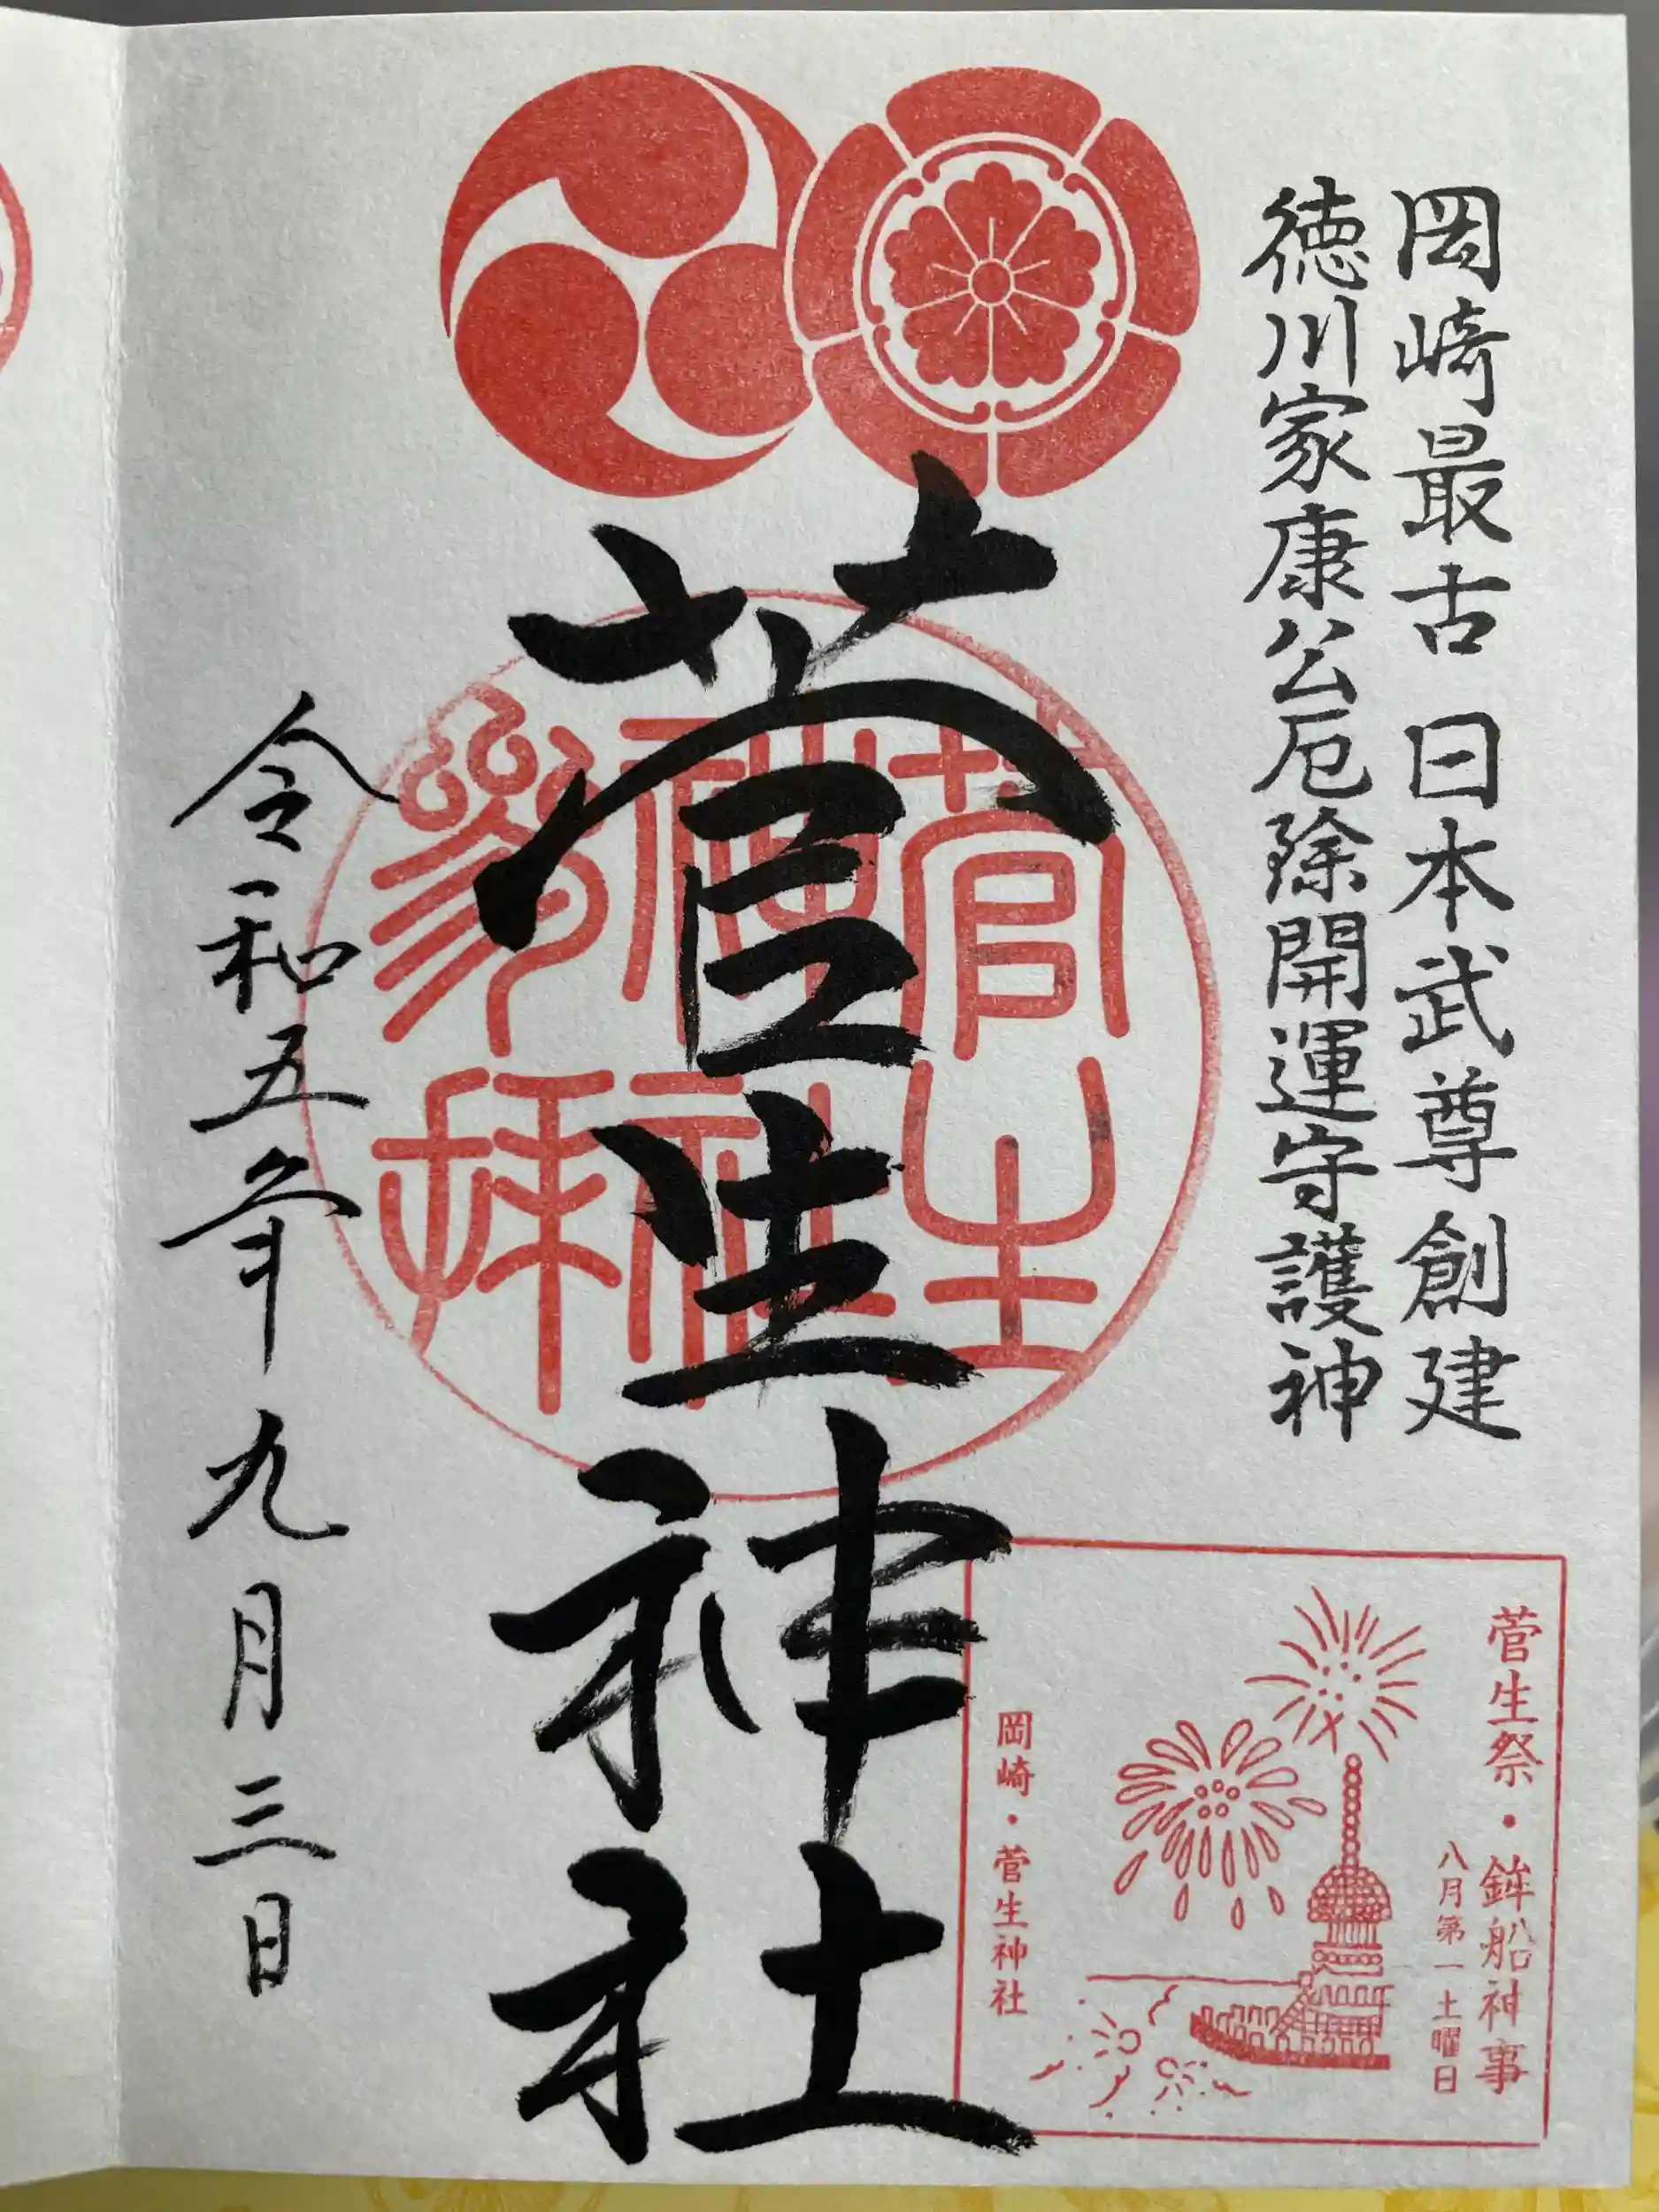 岡崎最古 日本武尊創建
徳川家康公厄除開運守護神
菅生神社
菅生神社参拝
令和五年九月三日
菅生祭・鉾船神事
八月第一土曜日
岡崎・菅生神社